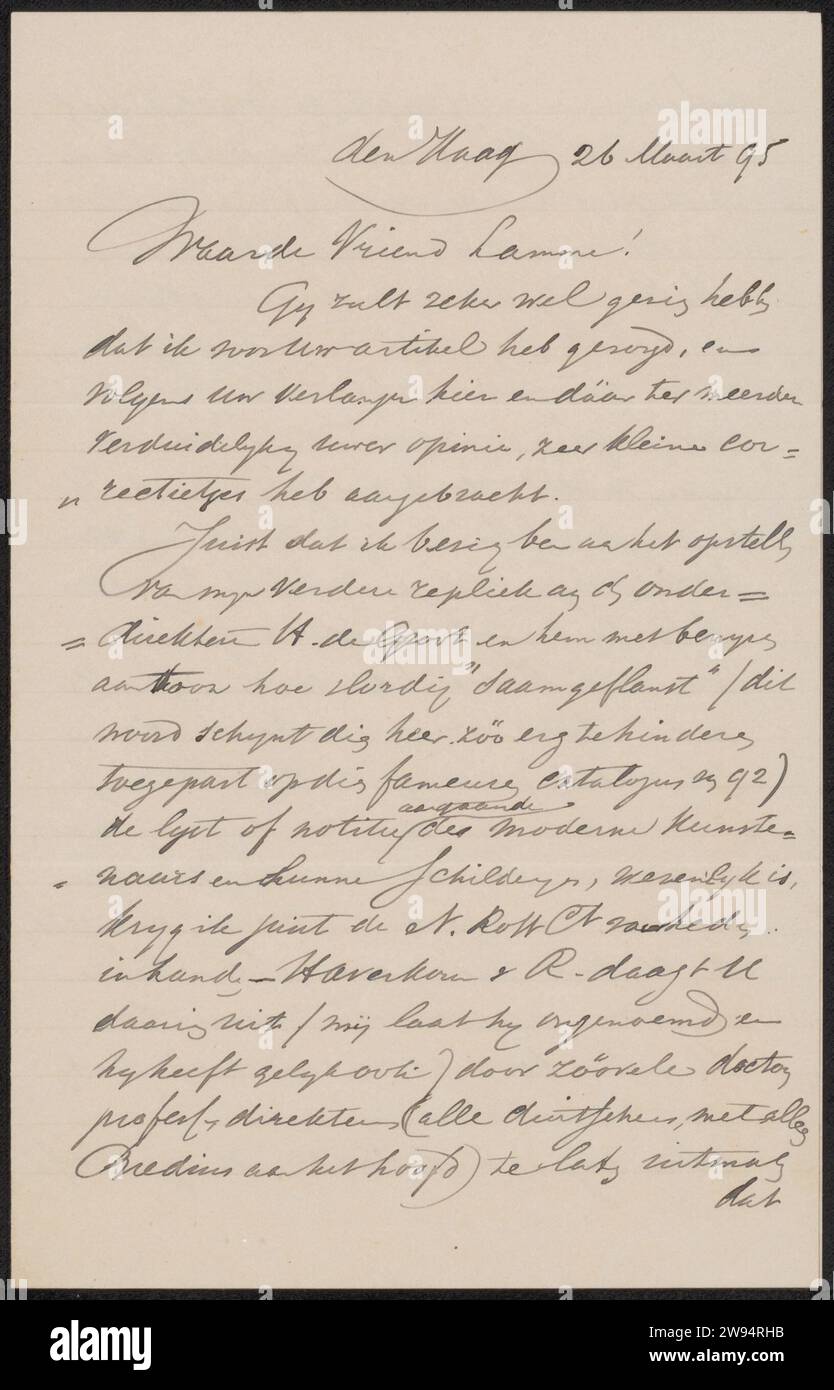 den Haag 26 Maart 95
Waarde Vriend Lamme!
Gij zult zeker wel gezien hebben
dat ik voor Uw artikel heb gezorgd, en
volgens Uw verlangen hier en dáár ter meerdere
verduidelijking uwer opinie, zeer kleine cor=
„ rectietjes heb aangebracht.
Juist dat ik bezig ben aan het opstellen
van mijn verdere repliek aan den onder=
= direkteur H. de Groot en hem met bewijzen
aantoon hoe slordig "saamgeflanst" / dit
woord schijnt dien heer zóó erg te hinderen
toegepast op dien fameusen catalogus van 92)
aangaande
de lijst of notitie des moderne Kunste=
= naars en hunne Schilderijen, wezenlijk is,
krijg ik juist de N. Rott Ct van heden
in handen – Haverkorn v R. daagt U
daarin uit / mij laat hij ongenoemd en
hij heeft gelijk ook) door zóóvele doctoren
professoren, direkteurs (alle duitschers, met
Bredius aan het hoofd) te laten uitmaken
dat
alamy
alamy
a
Image ID: 2W94RHB
www.alamy.com